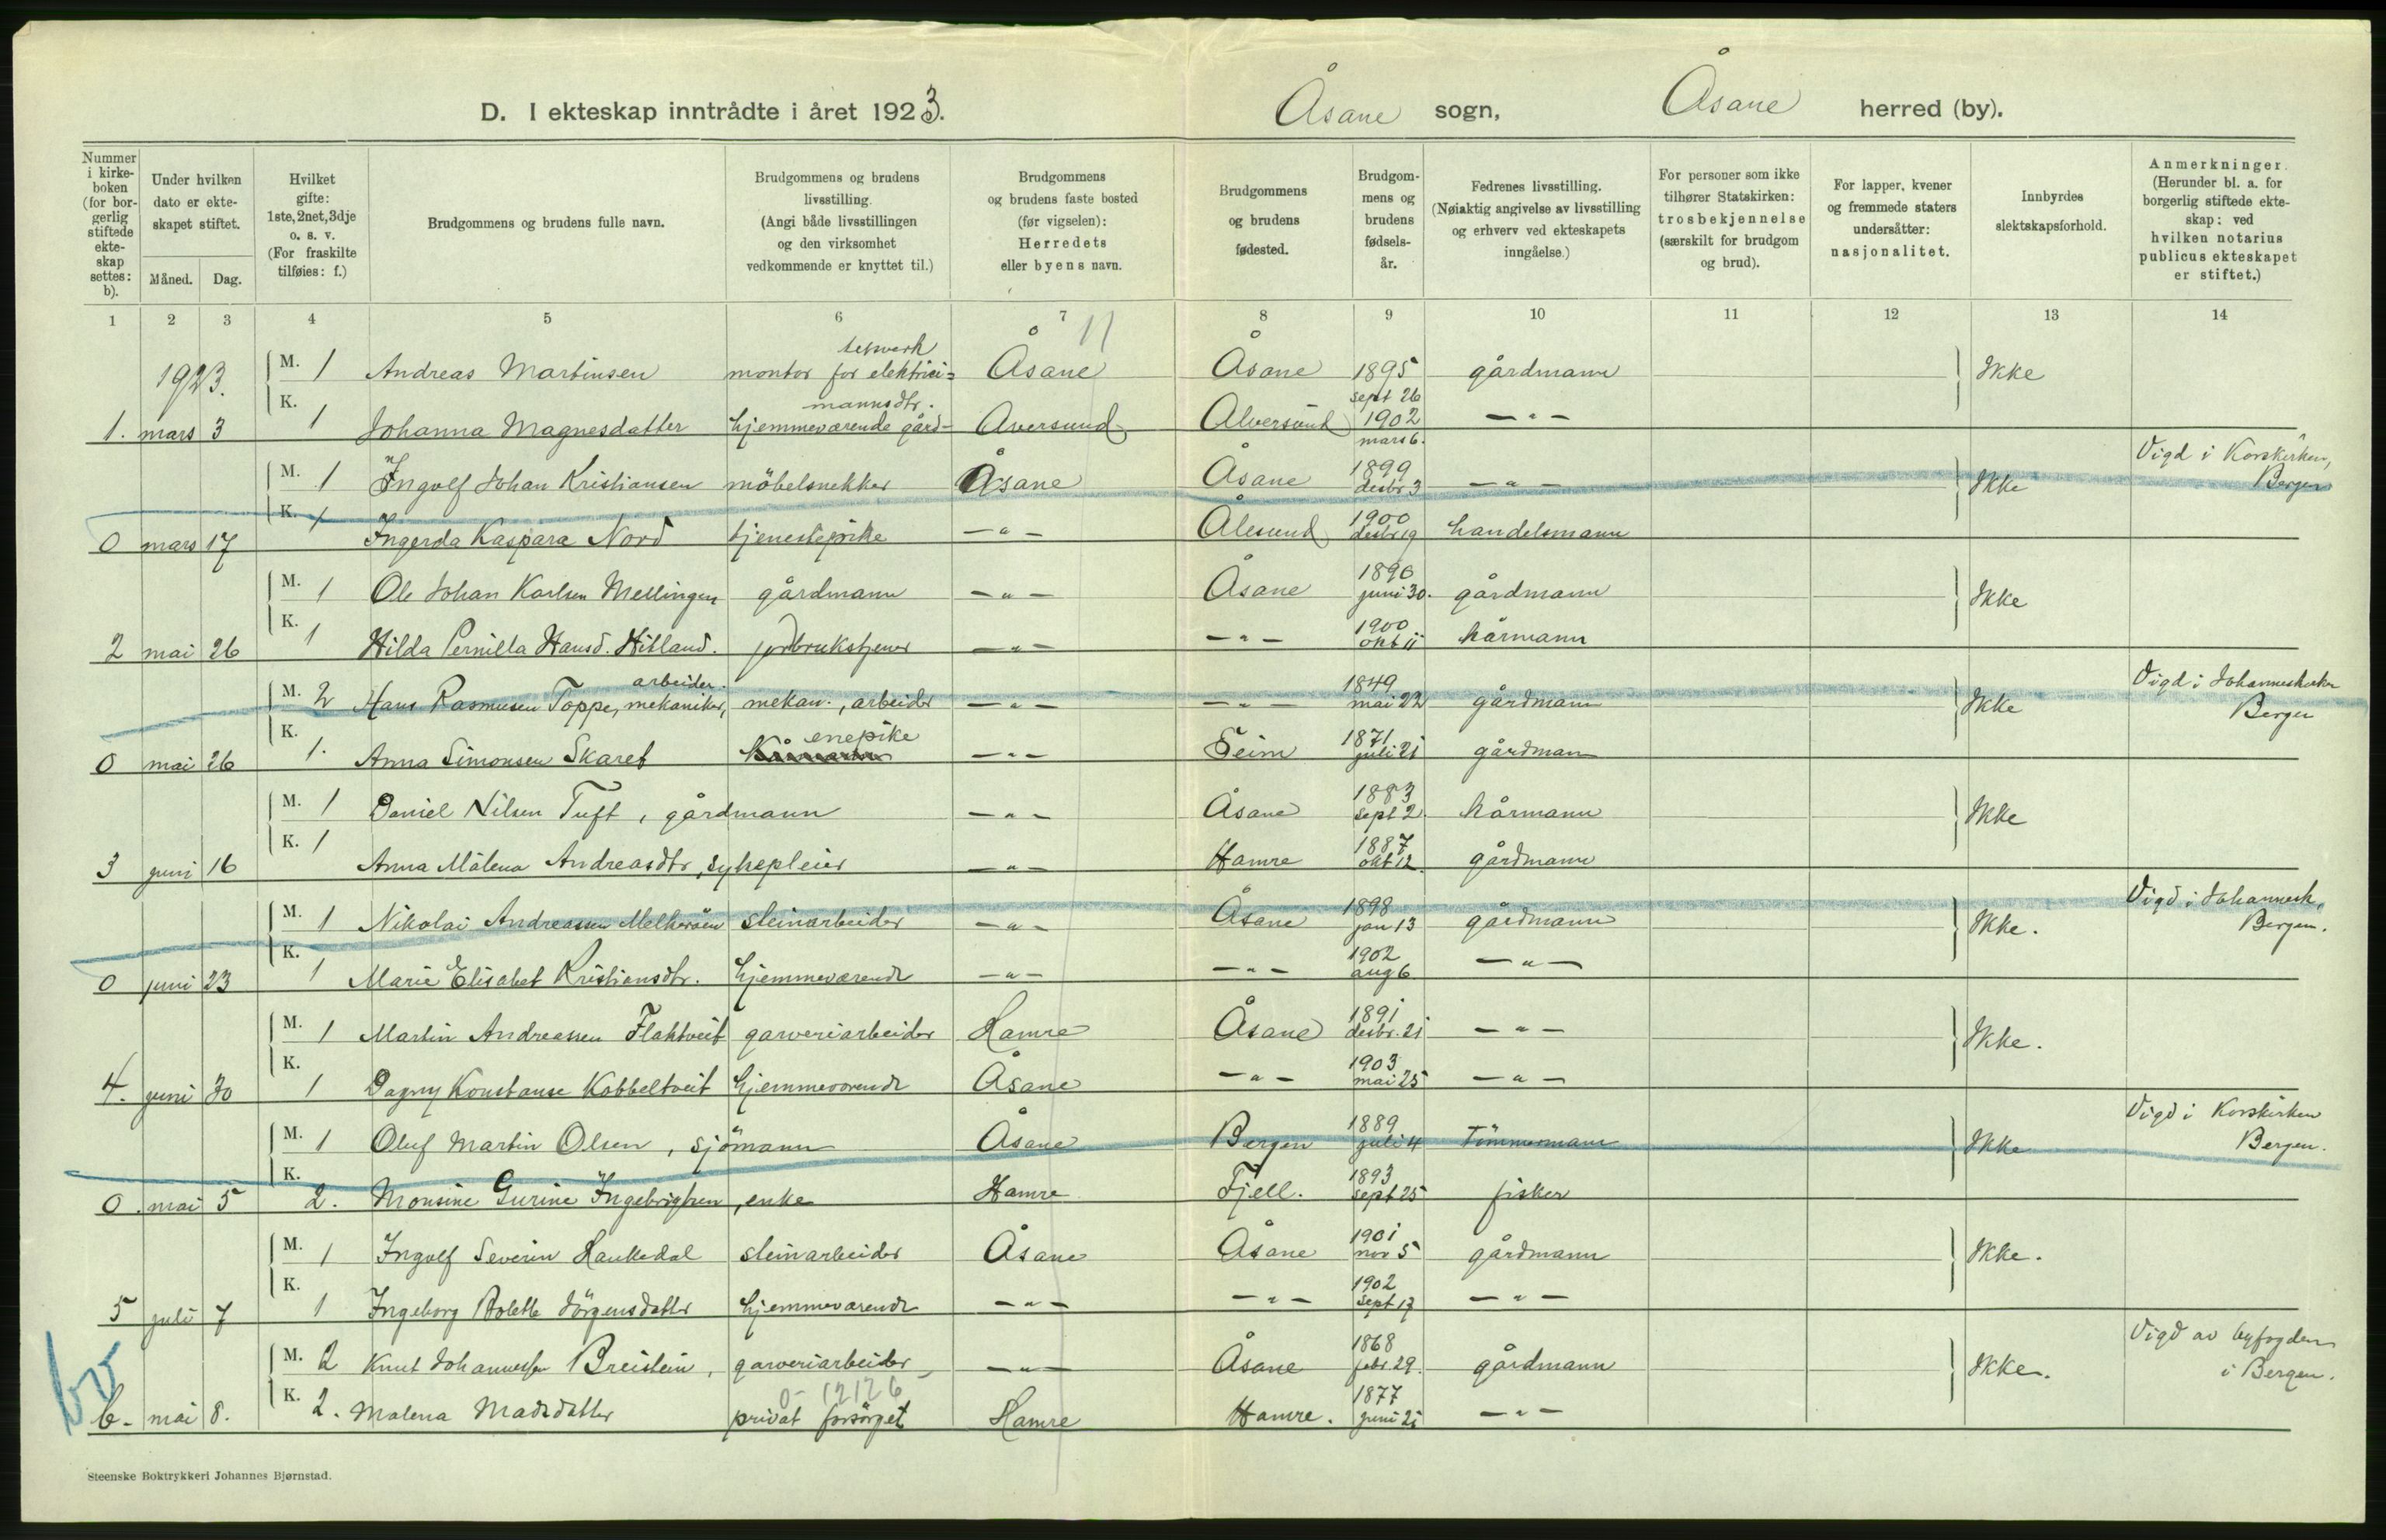 D. I ekteskap inntrådte i året 1923. Åsane sogn, Åsane herred (by).
Nummer i kirkeboken (for borgerlig stiftede ekteskap settes: b).
Under hvilken dato er ekteskapet stiftet.
Måned. Dag.
Hvilket gifte: 1ste, 2net, 3dje o. s. v. (For fraskilte tilføies: f.)
Brudgommens og brudens fulle navn.
Brudgommens og brudens livsstilling. (Angi både livsstillingen og den virksomhet vedkommende er knyttet til.)
Brudgommens og brudens faste bosted (før vigselen): Herredets eller byens navn.
Brudgommens og brudens fødested.
Brudgommens og brudens fødselsår.
Fedrenes livsstilling. (Nøiaktig angivelse av livsstilling og erhverv ved ekteskapets inngåelse.)
For personer som ikke tilhører Statskirken: trosbekjennelse (særskilt for brudgom og brud).
For lapper, kvener og fremmede staters undersåtter: nasjonalitet.
Innbyrdes slektskapsforhold.
Anmerkninger. (Herunder bl. a. for borgerlig stiftede ekteskap: ved hvilken notarius publicus ekteskapet er stiftet.)
1 2 3 4 5 6 7 8 9 10 11 12 13 14
11
1923. M. 1 Andreas Martinsen montør for elektrici= tetsverk Åsane Åsane 1895 sept 26 gårdmann Ikke
1. mars 3 K. 1 Johanna Magnesdatter hjemmeværende gård- mannsdtr. Aversund Alversund 1902 mars 6. — " —
M. 1 Ingolf Johan Kristiansen möbelsnekker Åsane Åsane 1899 desbr 3 — " — Ikke Vigd i Korskirken, Bergen
0 mars 17 K. 1 Ingerda Kaspara Nord tjenestepike — " — Ålesund 1900 desbr 19 handelsmann
M. 1 Ole Johan Karlsen Mellingen gårdmann — " — Åsane 1896 juni 30. gårdmann Ikke
2 mai 26 K. 1 Hilda Pernilla Hansd. Hitland. jordbrukstjener — " — — " — 1900 okt 11 kårmann
M. 2 Hans Rasmusen Toppe, mekaniker, arbeider. mekan., arbeider — " — — " — 1849 mai 22 gårdmann Ikke Vigd i Johanneskirken Bergen
0 mai 26 K. 1. Anna Simonsen Skaret enepike — " — Seim 1871 juli 21 gårdmann
M. 1 Daniel Nilsen Tuft, gårdmann — " — Åsane 1883 sept 2. kårmann Ikke
3 juni 16 K. 1 Anna Målena Andreasdtr, sykepleier — " — Hamre 1887 okt 12. gårdmann
M. 1 Nikolai Andreassen Melkeråen steinarbeider — " — Åsane 1898 jan 13 gårdmann Ikke. Vigd i Johannesk. Bergen.
0 juni 23 K. 1 Marie Elisabet Kristiansdtr. hjemmeværende — " — — " — 1902 aug 6. — " —
M. 1 Martin Andreassen Flaktveit garveriarbeider Hamre Åsane 1891 desbr. 21 — " — Ikke.
4. juni 30 K. 1 Dagny Konstanse Kobbeltveit hjemmeværende Åsane — " — 1903 mai 25 — " —
M. 1 Oluf Martin Olsen, sjömann Åsane Bergen 1889 juli 4 Tömmermann Ikke Vigd i Korskirken Bergen.
0. mai 5 K. 2. Monsine Gurine Ingebrigtsen, enke Hamre Fjell. 1893 sept 25 fisker
M. 1 Ingolf Severin Haukedal steinarbeider Åsane Åsane 1901 nov 5 gårdmann Ikke.
5 juli 7 K. 1 Ingeborg Bolette Jörgensdatter hjemmeværende — " — — " — 1902 sept 17 — " —
M. 2 Knut Johannessen Breistein, garveriarbeider — " — Åsane 1868 febr. 29. gårdmann Ikke. Vigd av byfogden i Bergen.
0- 12126
b. mai 8. K. 2. Malena Madsdatter privat forsörget Hamre Hamre. 1877 juni 21 — " —
Steenske Boktrykkeri Johannes Bjørnstad.